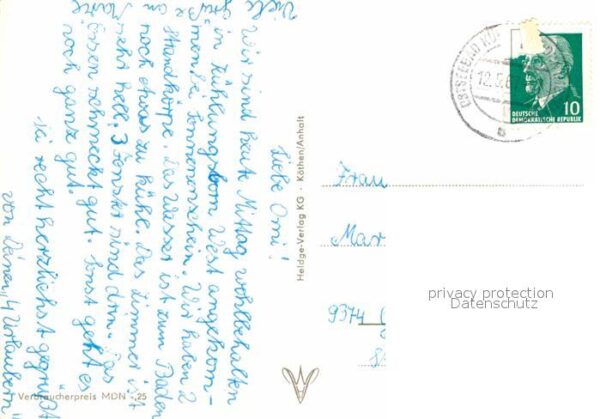 Liebe Omi!
Wir sind heute Mittag wohlbehalten
in Kühlungsborn West angekom-
men bei Sonnenschein. Wir haben 2
Strandkörbe. Das Wasser ist zum Baden
noch etwas zu kühl. Das Zimmer ist
sehr hell, 3 Fenster sind drin. Das
Essen schmeckt gut. Sonst geht es
noch ganz gut.
Sei recht herzlichst gegrüßt
von Deinen "4 Urlaubern"
Viele
Grüße an
Verbraucherpreis MDN -,25
Heldge-Verlag KG · Köthen/Anhalt
OSTSEEBAD
DEUTSCHE
DEMOKRATISCHE REPUBLIK
10
Frau
Mar
9374
privacy protection
Datenschutz